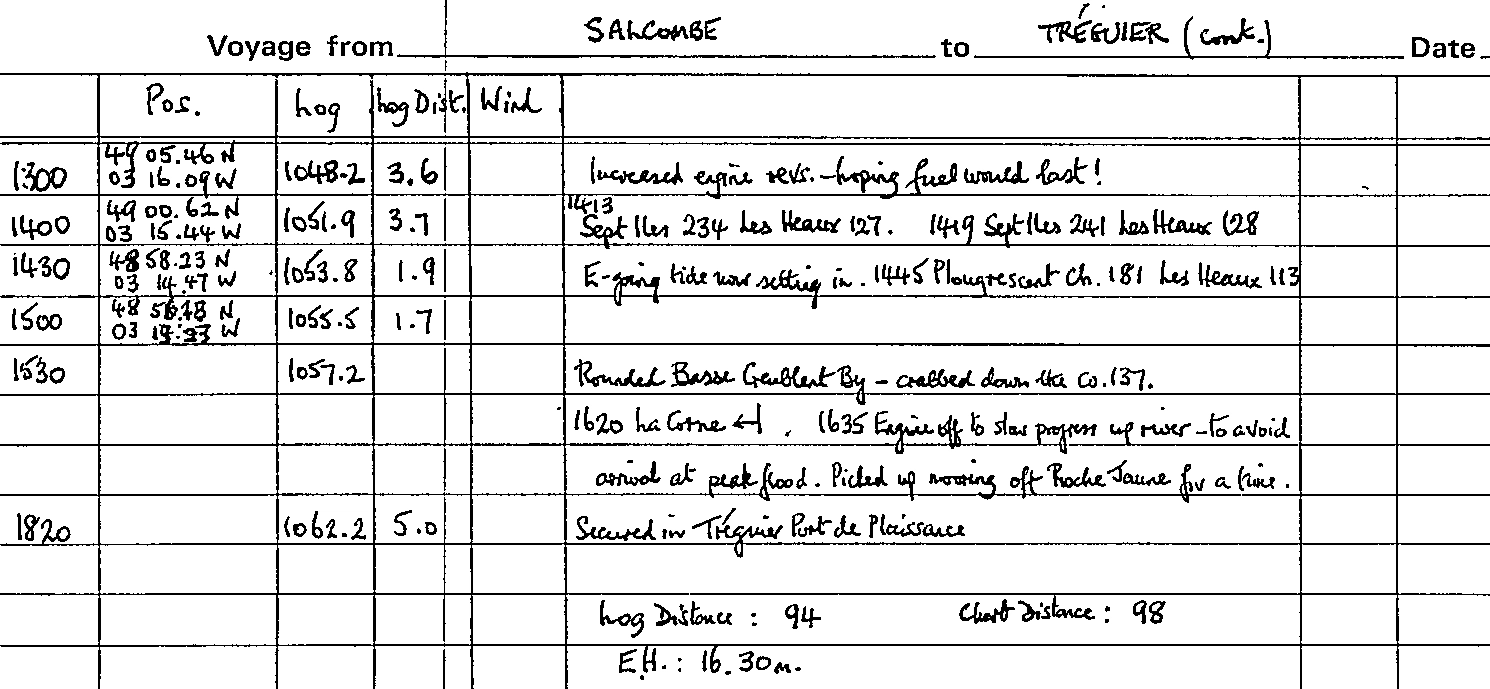 Voyage from SALCOMBE to TRÉGUIER (cont.) Date
Pos. Log Log Dist. Wind
49 05.46 N
1300 03 16.09 W 1048.2 3.6 Increased engine revs. - hoping fuel would last!
49 00.62 N 1413
1400 03 15.44 W 1051.9 3.7 Sept Iles 234 Les Heaux 127. 1419 Sept Iles 241 Les Heaux 128
48 58.23 N
1430 03 14.47 W 1053.8 1.9 E-going tide now setting in. 1445 Plougrescant Ch. 181 Les Heaux 113
48 N
1500 03 W 1055.5 1.7
1530 1057.2 Rounded Basse Crublent By - crabbed down the Co. 137.
1620 La Corne. 1635 Engine off to slow progress up river - to avoid
arrival at peak flood. Picked up mooring off Roche Jaune for a time.
1820 1062.2 5.0 Secured in Tréguier Port de Plaissance
Log Distance : 94 Chart Distance : 98
E.H. : 16.30m.